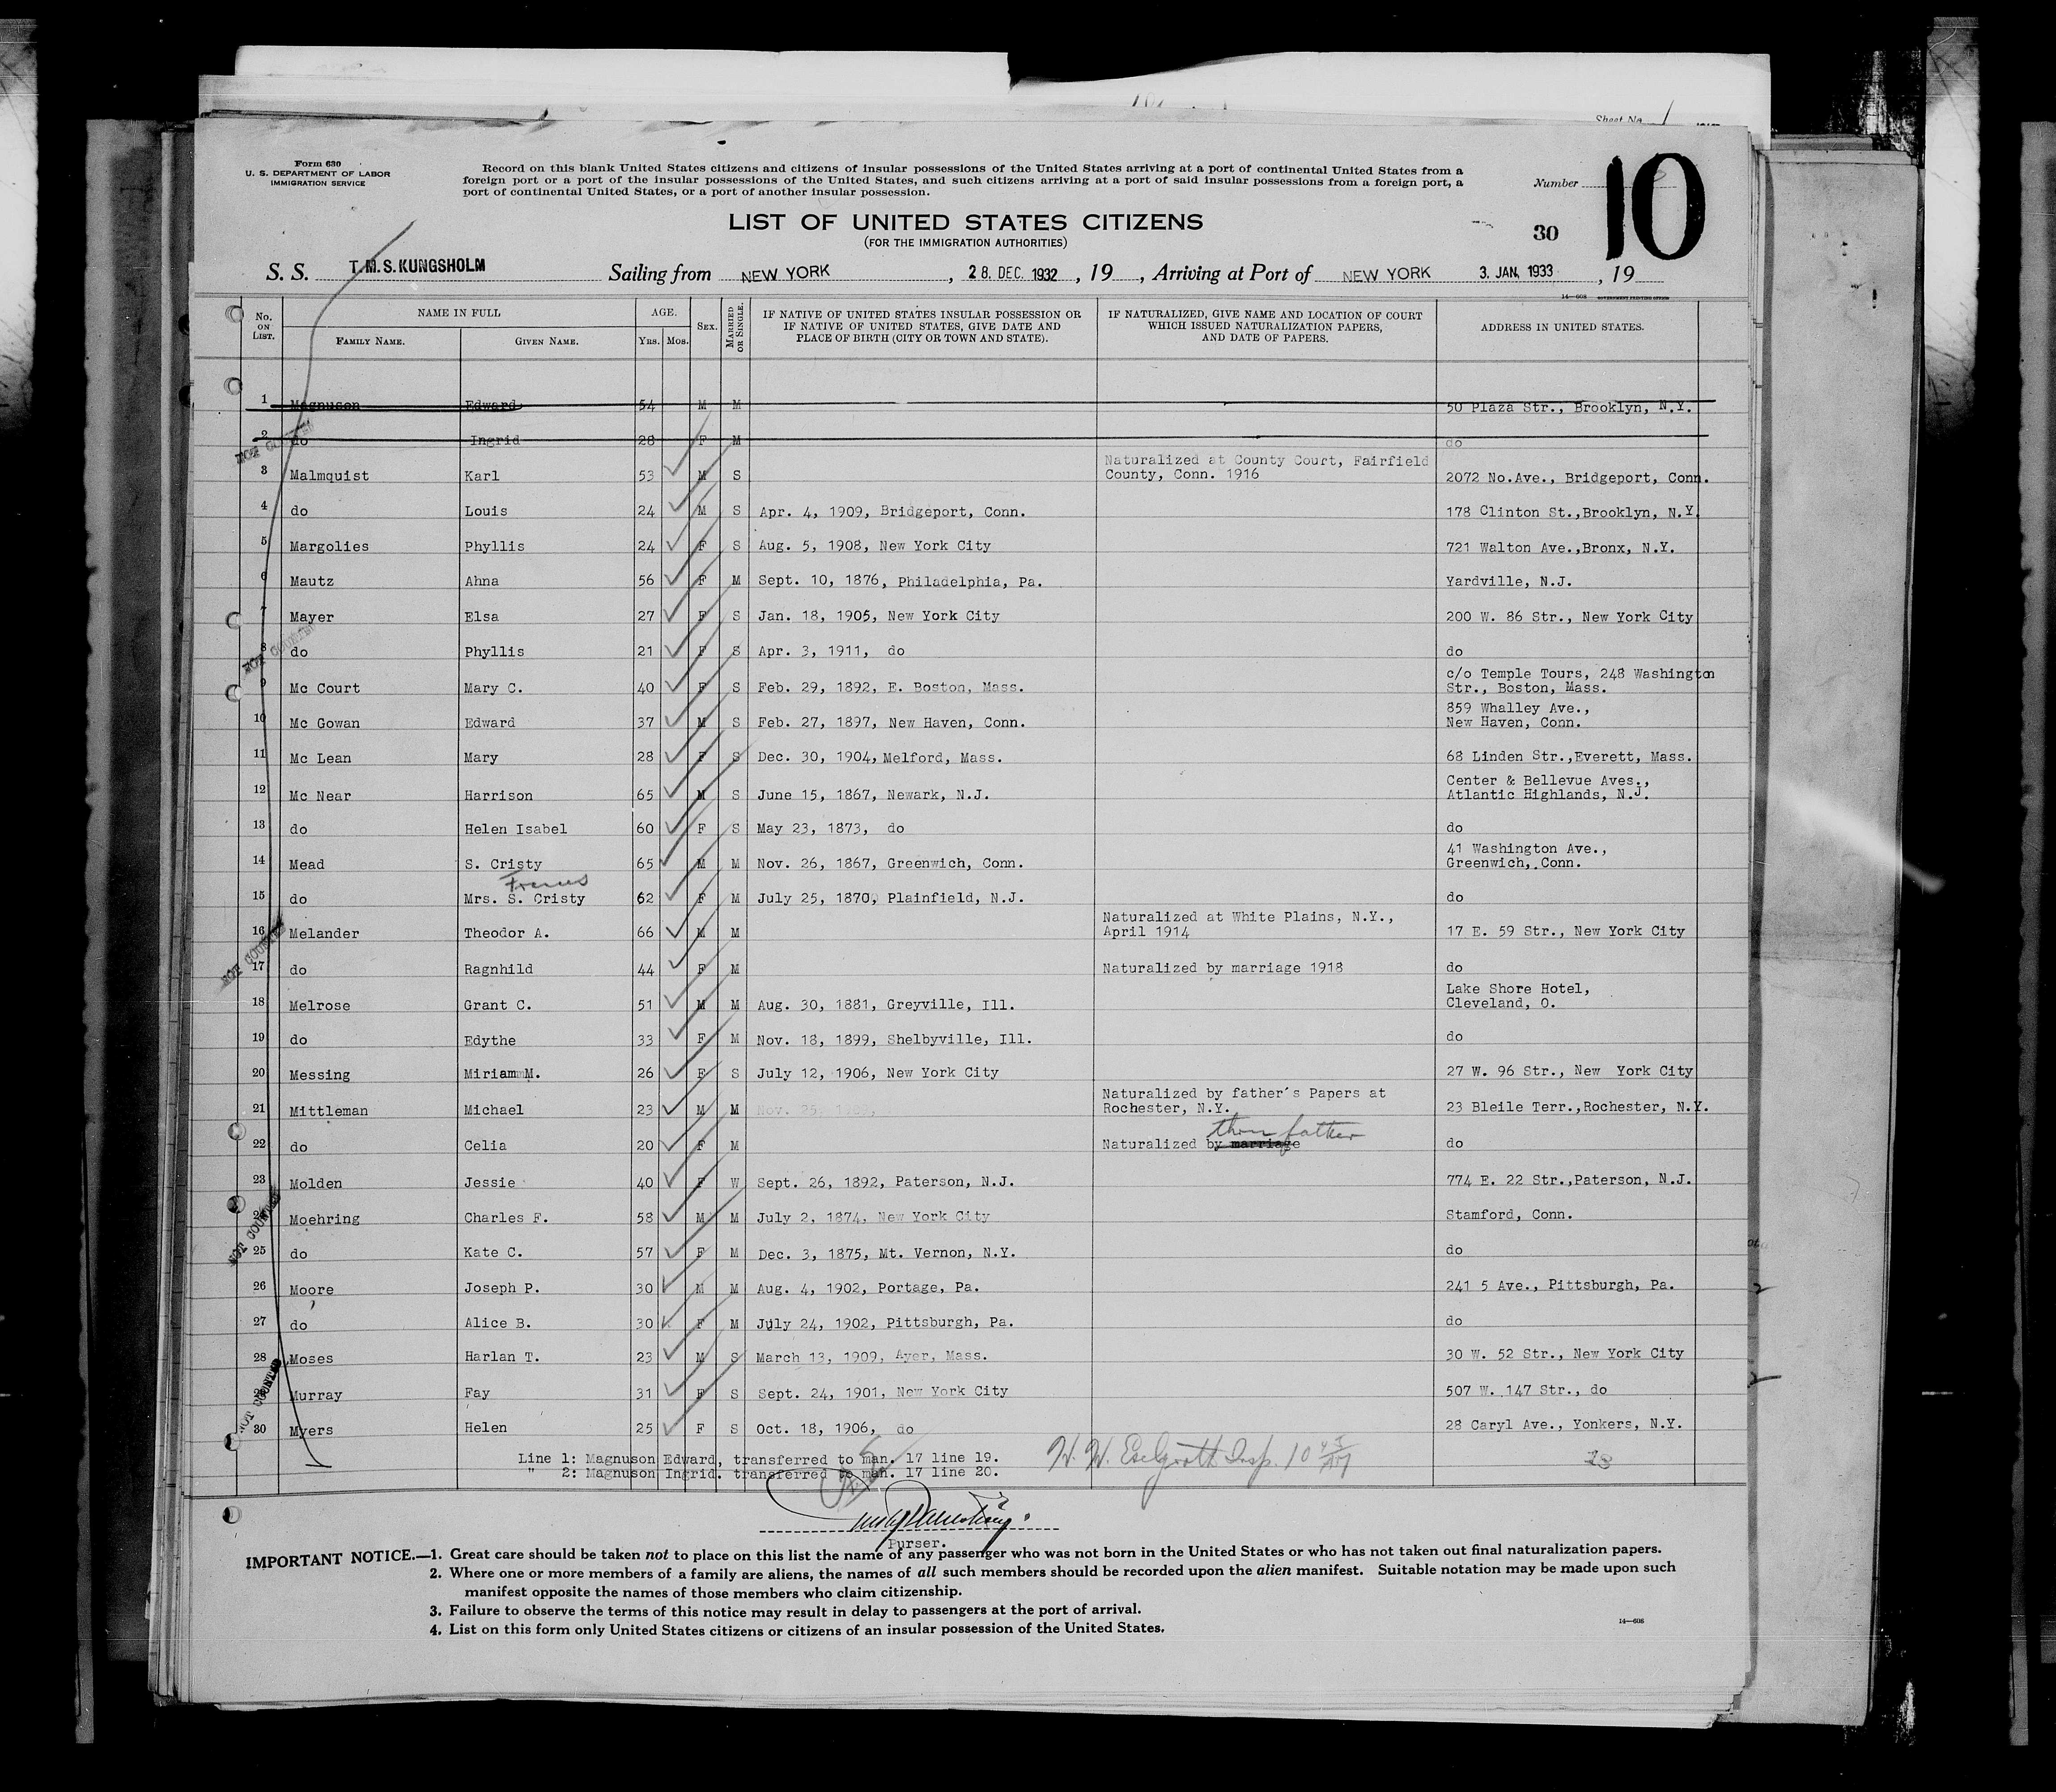 Sheet No. 1
Form 630
U. S. DEPARTMENT OF LABOR
IMMIGRATION SERVICE
Record on this blank United States citizens and citizens of insular possessions of the United States arriving at a port of continental United States from a
foreign port or a port of the insular possessions of the United States, and such citizens arriving at a port of said insular possessions from a foreign port, a
port of continental United States, or a port of another insular possession.
Number 10
LIST OF UNITED STATES CITIZENS
(FOR THE IMMIGRATION AUTHORITIES)
30
S. S. T.M.S. KUNGSHOLM Sailing from NEW YORK, 28. DEC. 1932, 19 , Arriving at Port of NEW YORK 3. JAN. 1933, 19
14—608 GOVERNMENT PRINTING OFFICE
No. ON LIST. NAME IN FULL FAMILY NAME. GIVEN NAME. AGE. YRS. MOS. SEX. MARRIED OR SINGLE. IF NATIVE OF UNITED STATES INSULAR POSSESSION OR IF NATIVE OF UNITED STATES, GIVE DATE AND PLACE OF BIRTH (CITY OR TOWN AND STATE). IF NATURALIZED, GIVE NAME AND LOCATION OF COURT WHICH ISSUED NATURALIZATION PAPERS, AND DATE OF PAPERS. ADDRESS IN UNITED STATES.
1 Magnuson Edward 54 M M 50 Plaza Str., Brooklyn, N.Y.
2 do Ingrid 28 F M do
NOT COUNTED
3 Malmquist Karl 53 M S Naturalized at County Court, Fairfield County, Conn. 1916 2072 No.Ave., Bridgeport, Conn.
4 do Louis 24 M S Apr. 4, 1909, Bridgeport, Conn. 178 Clinton St.,Brooklyn, N.Y.
5 Margolies Phyllis 24 F S Aug. 5, 1908, New York City 721 Walton Ave.,Bronx, N.Y.
6 Mautz Ahna 56 F M Sept. 10, 1876, Philadelphia, Pa. Yardville, N.J.
7 Mayer Elsa 27 F S Jan. 18, 1905, New York City 200 W. 86 Str., New York City
8 do Phyllis 21 F S Apr. 3, 1911, do do
NOT COUNTED
9 Mc Court Mary C. 40 F S Feb. 29, 1892, E. Boston, Mass. c/o Temple Tours, 248 Washington Str., Boston, Mass.
10 Mc Gowan Edward 37 M S Feb. 27, 1897, New Haven, Conn. 859 Whalley Ave., New Haven, Conn.
11 Mc Lean Mary 28 F S Dec. 30, 1904, Melford, Mass. 68 Linden Str.,Everett, Mass.
12 Mc Near Harrison 65 M S June 15, 1867, Newark, N.J. Center & Bellevue Aves., Atlantic Highlands, N.J.
13 do Helen Isabel 60 F S May 23, 1873, do do
14 Mead S. Cristy 65 M M Nov. 26, 1867, Greenwich, Conn. 41 Washington Ave., Greenwich, Conn.
15 do Mrs. S. Cristy 62 F M July 25, 1870, Plainfield, N.J. do
16 Melander Theodor A. 66 M M Naturalized at White Plains, N.Y., April 1914 17 E. 59 Str., New York City
NOT COUNTED
17 do Ragnhild 44 F M Naturalized by marriage 1918 do
18 Melrose Grant C. 51 M M Aug. 30, 1881, Greyville, Ill. Lake Shore Hotel, Cleveland, O.
19 do Edythe 33 F M Nov. 18, 1899, Shelbyville, Ill. do
20 Messing Miriam M. 26 F S July 12, 1906, New York City 27 W. 96 Str., New York City
21 Mittleman Michael 23 M M Naturalized by father's Papers at Rochester, N.Y. 23 Bleile Terr.,Rochester, N.Y.
22 do Celia 20 F M Naturalized by marriage thru father do
23 Molden Jessie 40 F W Sept. 26, 1892, Paterson, N.J. 774 E. 22 Str.,Paterson, N.J.
24 Moehring Charles F. 58 M M July 2, 1874, New York City Stamford, Conn.
NOT COUNTED
25 do Kate C. 57 F M Dec. 3, 1875, Mt. Vernon, N.Y. do
26 Moore Joseph P. 30 M M Aug. 4, 1902, Portage, Pa. 241 5 Ave., Pittsburgh, Pa.
27 do Alice B. 30 F M July 24, 1902, Pittsburgh, Pa. do
28 Moses Harlan T. 23 M S March 13, 1909, Ayer, Mass. 30 W. 52 Str., New York City
29 Murray Fay 31 F S Sept. 24, 1901, New York City 507 W. 147 Str., do
NOT COUNTED
30 Myers Helen 25 F S Oct. 18, 1906, do 28 Caryl Ave., Yonkers, N.Y.
Line 1: Magnuson Edward, transferred to man. 17 line 19.
" 2: Magnuson Ingrid. transferred to man. 17 line 20.
28
Purser.
IMPORTANT NOTICE.—1. Great care should be taken not to place on this list the name of any passenger who was not born in the United States or who has not taken out final naturalization papers.
2. Where one or more members of a family are aliens, the names of all such members should be recorded upon the alien manifest. Suitable notation may be made upon such
manifest opposite the names of those members who claim citizenship.
3. Failure to observe the terms of this notice may result in delay to passengers at the port of arrival.
4. List on this form only United States citizens or citizens of an insular possession of the United States.
14—608